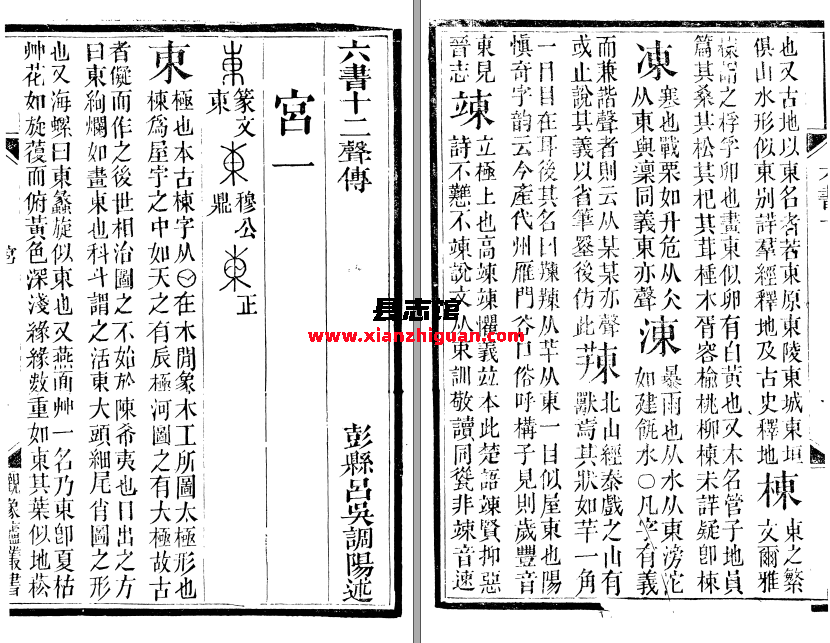 六書十二聲傳 彭縣呂吳調陽述
宮一
東 篆文 東 穆公鼎 東 正
東 極也本古棟字从日在木閒象木工所圖太極形也
棟為屋宇之中如天之有辰極河圖之有大極故古
者儗而作之後世相治圖之不始於陳希夷也日出之方
曰東絢爛如畫東也科斗謂之活東大頭細尾肖圖之形
也又海螺曰東蠡旋似東也又燕面艸一名乃東卽夏枯
艸花如旋蕧而俯黃色深淺緣緣數重如東其葉似地菘
宮
觀象廬叢書
也又古地以東名者若東原東陵東城東垣
俱山水形似東別詳羣經釋地及古史釋地 棟 東之繁文爾雅
棟謂之桴孚卵也畫東似卵有白黃也又木名管子地員
篇其桑其松其杞其茸種木胥容榆桃柳楝未詳疑卽棟
凍 寒也戰栗如升危从仌
从東與稟同義東亦聲 涷 暴雨也从水从東滂沱
如建瓴水○凡字有義
而兼諧聲者則云从某某亦聲
或止說其義以省筆墨後仿此 䍶 北山經泰戲之山有
獸焉其狀如羊一角
一目目在耳後其名曰䍶䍶从羊从東一目似屋東也陽
慎奇字韵云今產代州雁門谷口俗呼構子見則歲豐音
東見
晉志 竦 立極上也高竦竦懼義竝本此楚語竦賢抑惡
詩不戁不竦說文从束訓敬讀同㩳非竦音速
县志馆
www.xianzhiguan.com